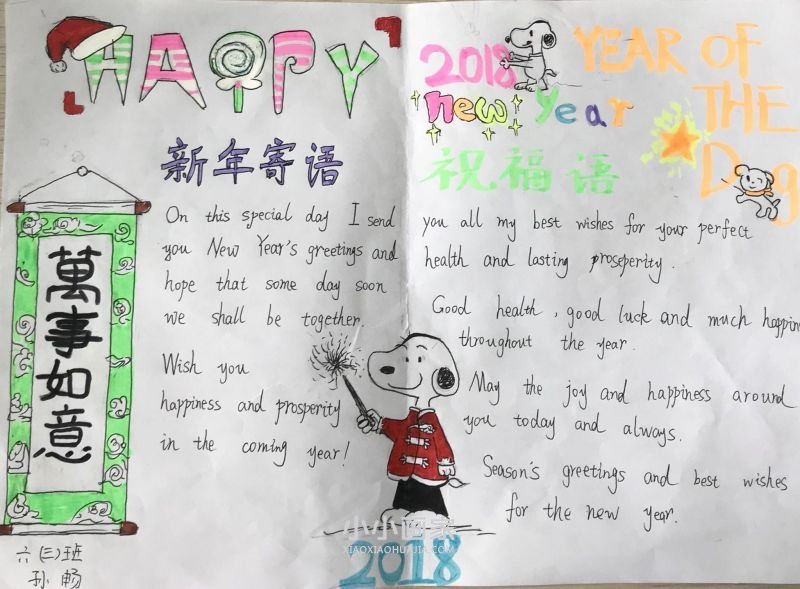 HAPPY
2018
new year
YEAR OF
THE
Dog
新年寄语
祝福语
萬事如意
On this special day I send
you New Year's greetings and
hope that some day soon
we shall be together.
Wish you
happiness and prosperity
in the coming year!
you all my best wishes for your perfect
health and lasting prosperity.
Good health, good luck and much happin
throughout the year.
May the joy and happiness around
you today and always.
Season's greetings and best wishes
for the new year.
六(三)班
孙畅
2018
小小画家
IAOXIAOHUAJIA.COM